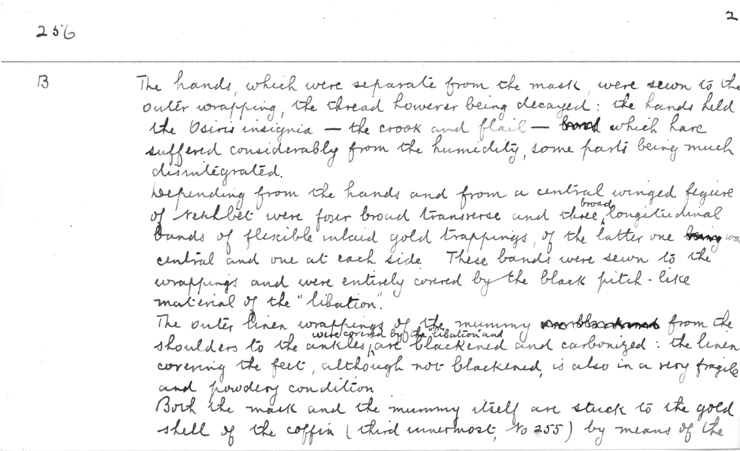 2
256
B
The hands, which were separate from the mask, were sewn to the
outer wrapping, the thread however being decayed: the hands held
the Osiris insignia — the crook and flail — which have
suffered considerably from the humidity, some parts being much
disintegrated.
Depending from the hands and from a central winged figure
of Nekhbet were four broad transverse and three broad longitudinal
bands of flexible inlaid gold trappings, of the latter one was
central and one at each side. These bands were sewn to the
wrappings and were entirely covered by the black pitch-like
material of the "libation".
The outer linen wrappings of the mummy from the
shoulders to the ankles, were covered by the "libation" and are blackened and carbonized: the linen
covering the feet, although not blackened, is also in a very fragile
and powdery condition
Both the mask and the mummy itself are stuck to the gold
shell of the coffin (third innermost, No 255) by means of the